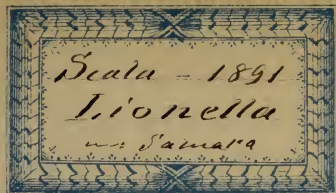 Scala - 1891
Lionella
m: Samara